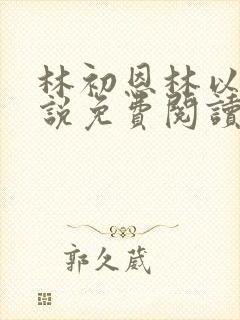 林初恩林以
說免費閱讀
郭久葳